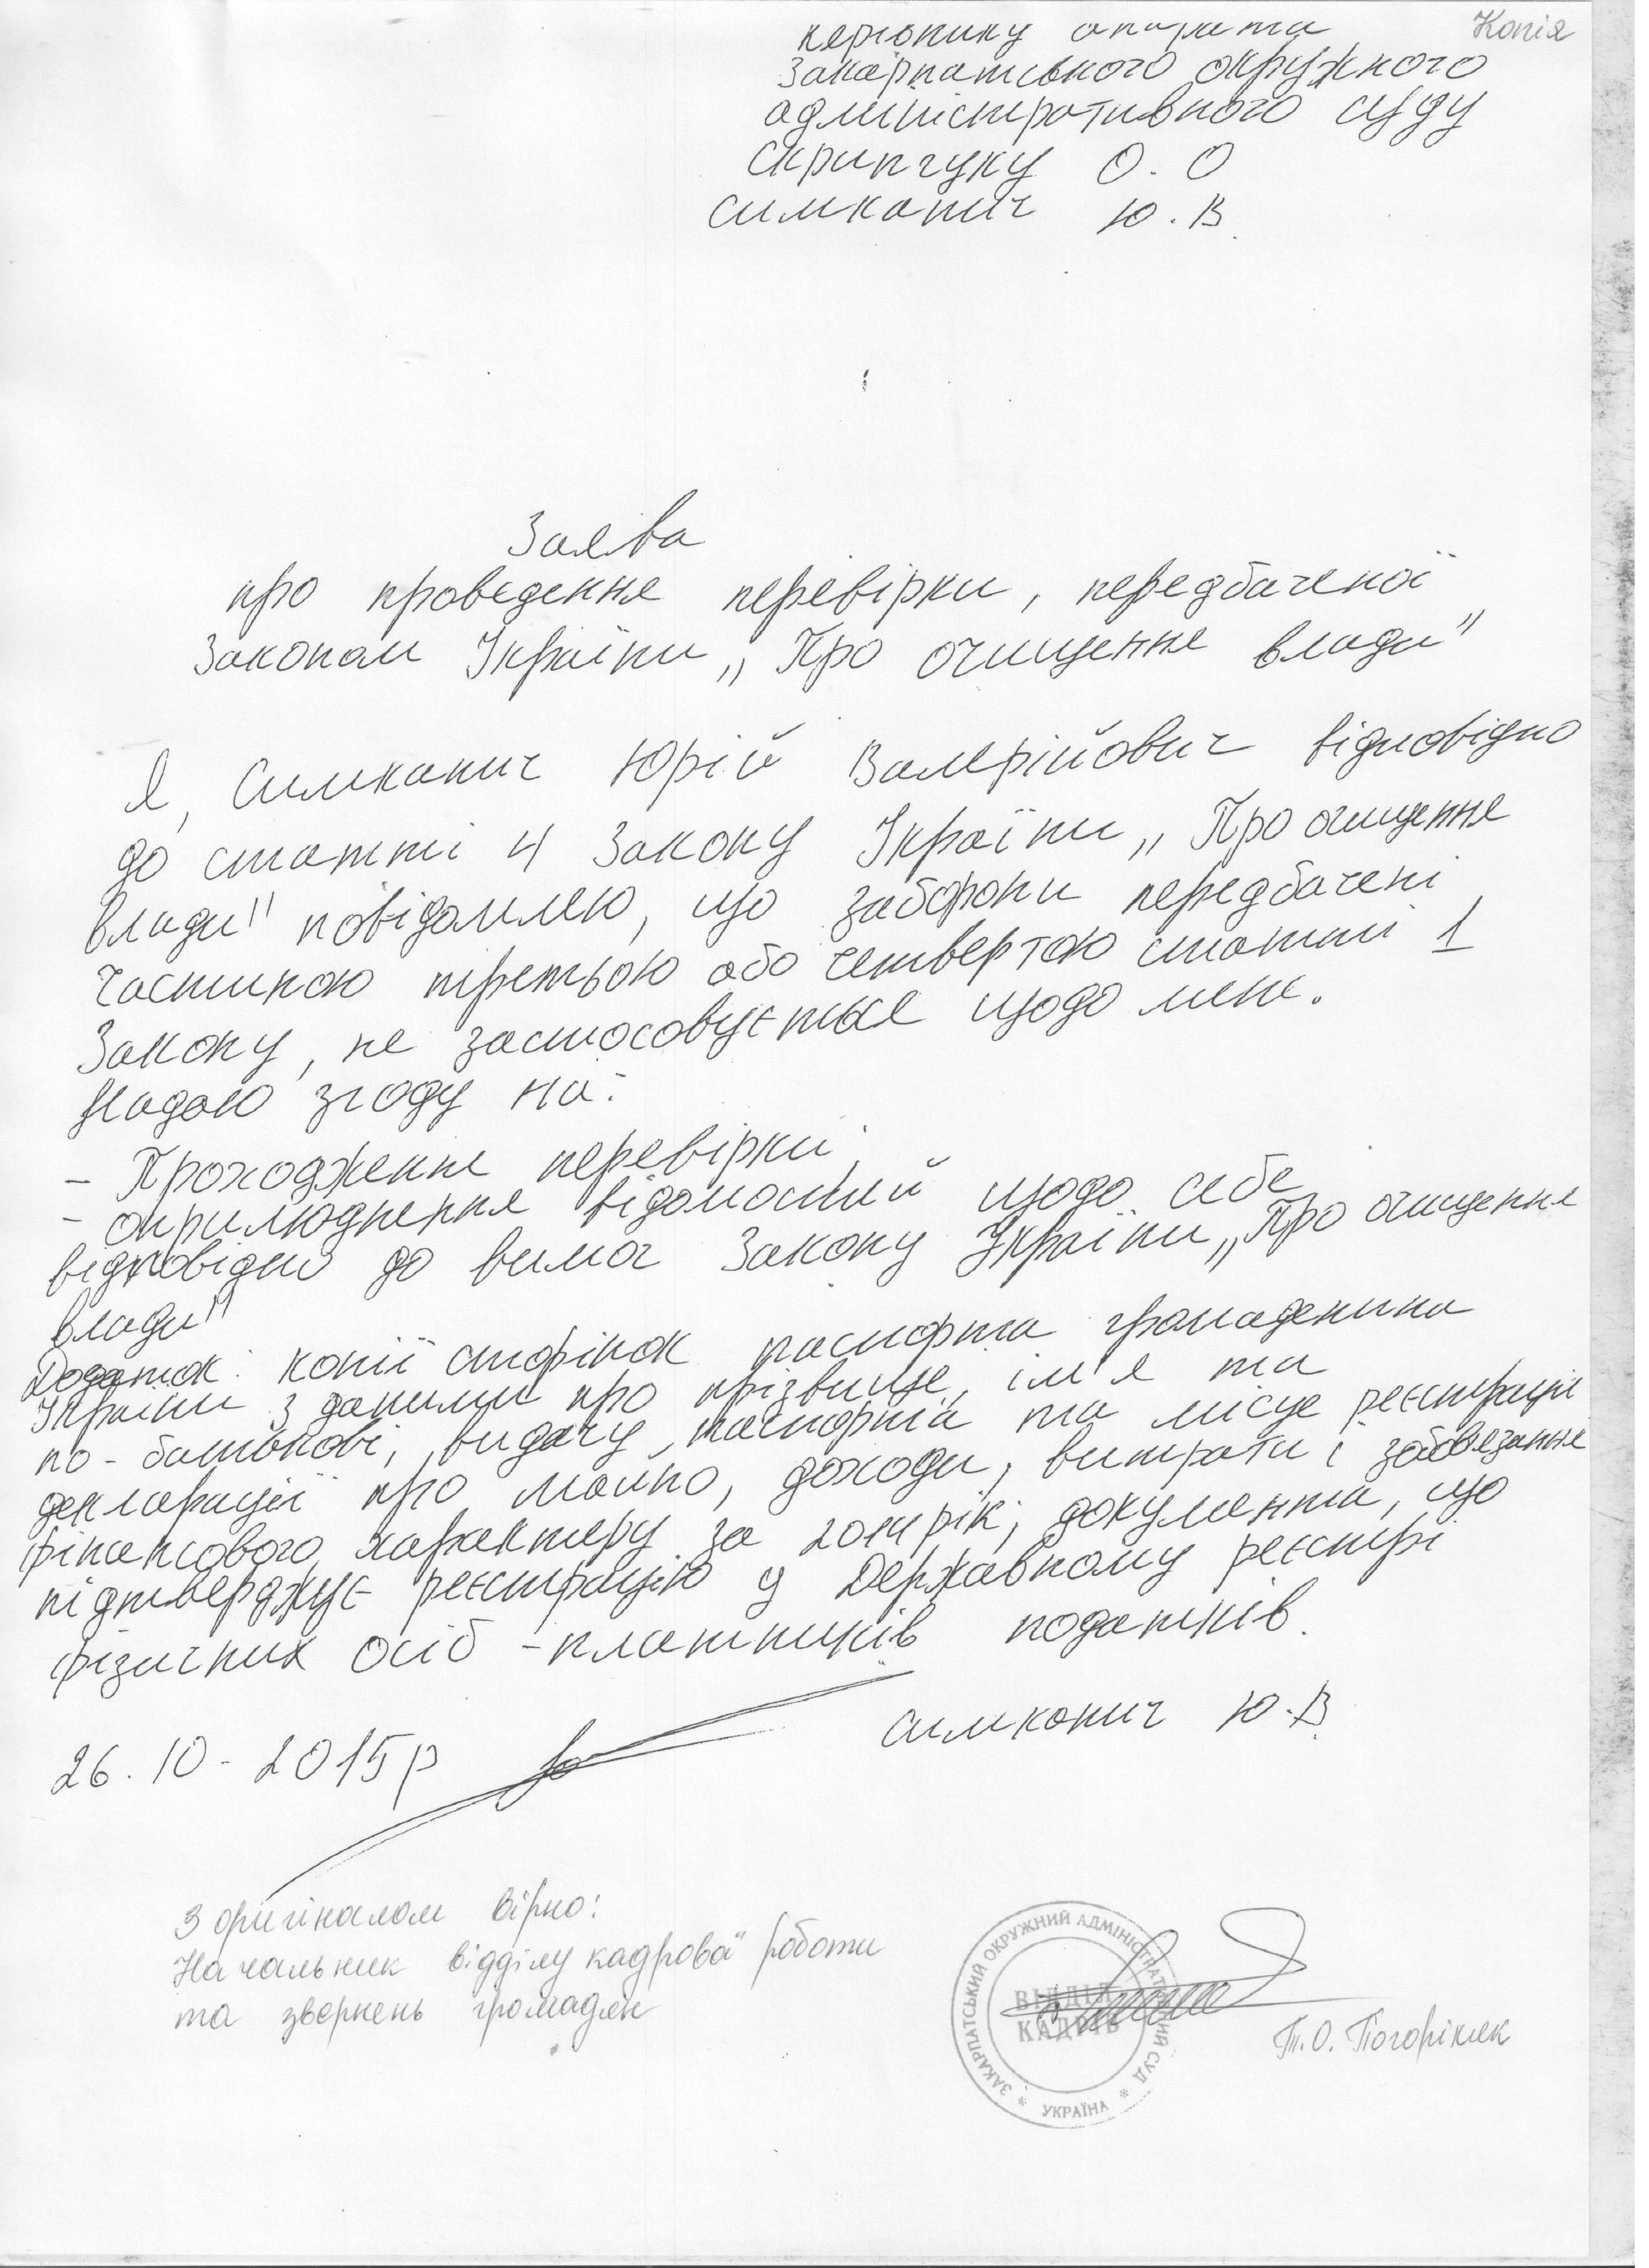 Копія
керівнику апарата
Закарпатського окружного
адміністративного суду
Скрипчуку О. О
Симканич Ю. В.
Заява
про проведення перевірки, передбаченої
Законом України „Про очищення влади"
Я, Симканич Юрій Валерійович відповідно
до статті 4 Закону України „Про очищення
влади" повідомляю, що заборони передбачені
частиною третьою або четвертою статті 1
Закону, не застосовується щодо мене.
Надаю згоду на:
- Проходження перевірки;
- оприлюднення відомостей щодо себе
відповідно до вимог Закону України „Про очищення
влади"
Додаток: копії сторінок паспорта громадянина
України з даними про прізвище, ім'я та
по-батькові, видачу паспорта та місце реєстрації
декларації про майно, доходи, витрати і зобов'язання
фінансового характеру за 2014 рік; документа, що
підтверджує реєстрацію у Державному реєстрі
фізичних осіб - платників податків.
26.10-2015р Симканич Ю.В.
З оригіналом вірно:
Начальник відділу кадрової роботи
та звернень громадян
ЗАКАРПАТСЬКИЙ ОКРУЖНИЙ АДМІНІСТРАТИВНИЙ СУД * УКРАЇНА *
ВІДДІЛ
КАДРІВ
Т.О. Погоріляк